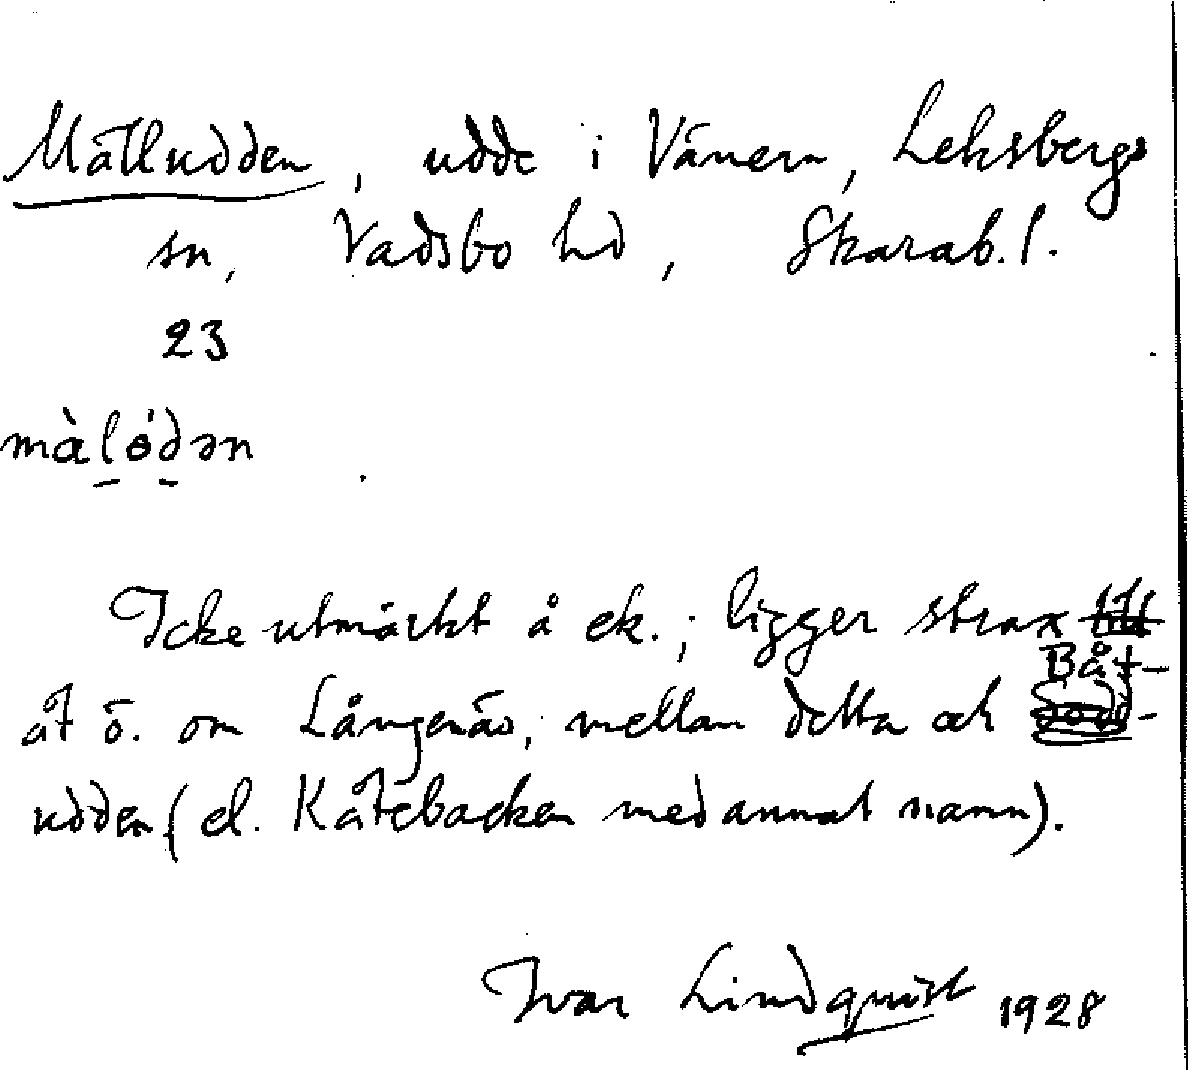 Mälludden, udde i Vänern, Leksbergs
sn, Vadsbo hd, Skarab. l.
23
màlö́dən
Icke utmärkt å ek.; ligger strax
åt ö. om Långenäs, mellan detta och Båt-
udden (el. Kåtebacken med annat namn).
Ivar Lindquist 1928